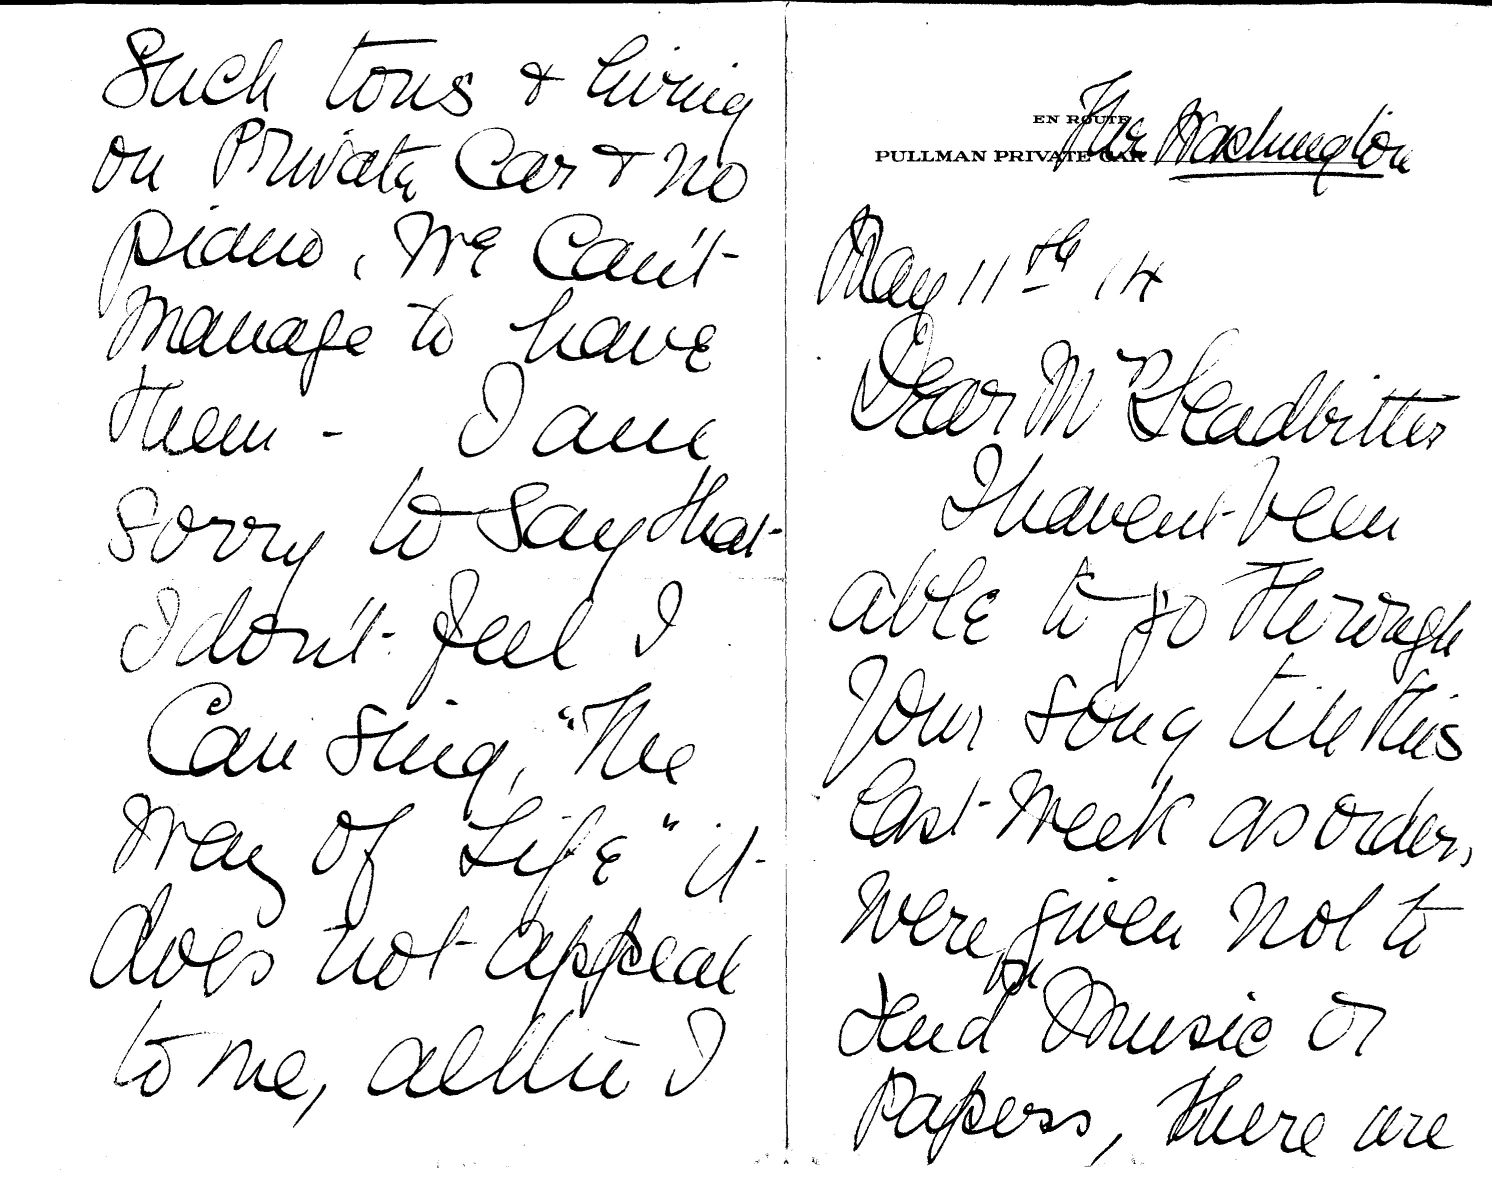 EN ROUTE
PULLMAN PRIVATE CAR The Washington
May 11th 14
Dear Mr Leadbitter
I havent been
able to go through
your song till this
last week as orders,
were given not to
send on Music or
Papers, there are
such tons & living
on Private Car & no
piano, We can't
manage to have
them - I am
sorry to say that
I don't feel I
Can sing, "The
Way of Life" it
does not appeal
to me, altho I